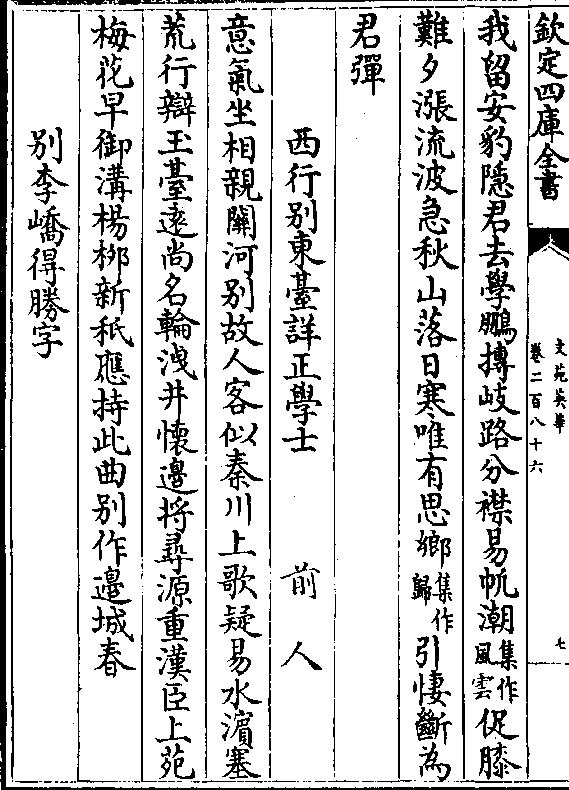 欽定四庫全書
文苑英華
卷二百八十六
七
我留安豹隱君去學鵬摶岐路分襟易帆潮集作風雲促膝
難夕漲流波急秋山落日寒唯有思鄉集作歸引悽斷為
君彈
西行别東臺詳正學士 前人
意氣坐相親關河别故人客似秦川上歌疑易水濵塞
荒行辯玉臺逺尚名輪洩井懷邊將尋源重漢臣上苑
梅花早御溝楊栁新秖應持此曲别作邊城春
别李嶠得勝字